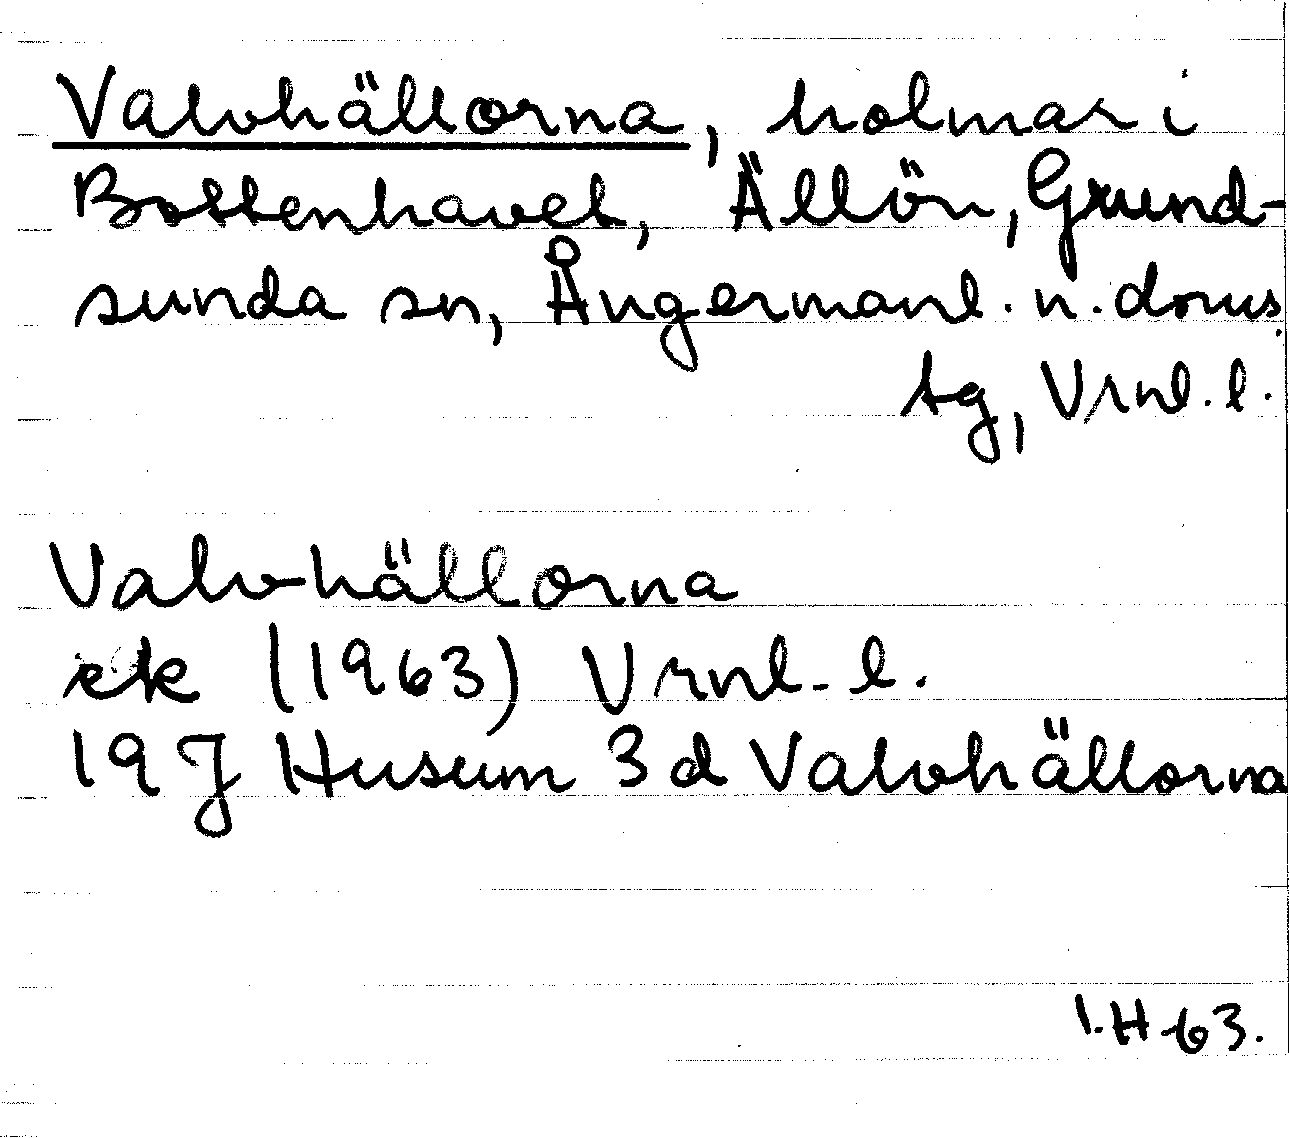 Valvhällorna, holmar i
Bottenhavet, Ällön, Grund-
sunda sn, Ångermanl. n. doms
tg, Vrnl. l.
Valvhällorna
ek (1963) Vrnl. l.
19 J Husum 3 d Valvhällorna
I.H-63.